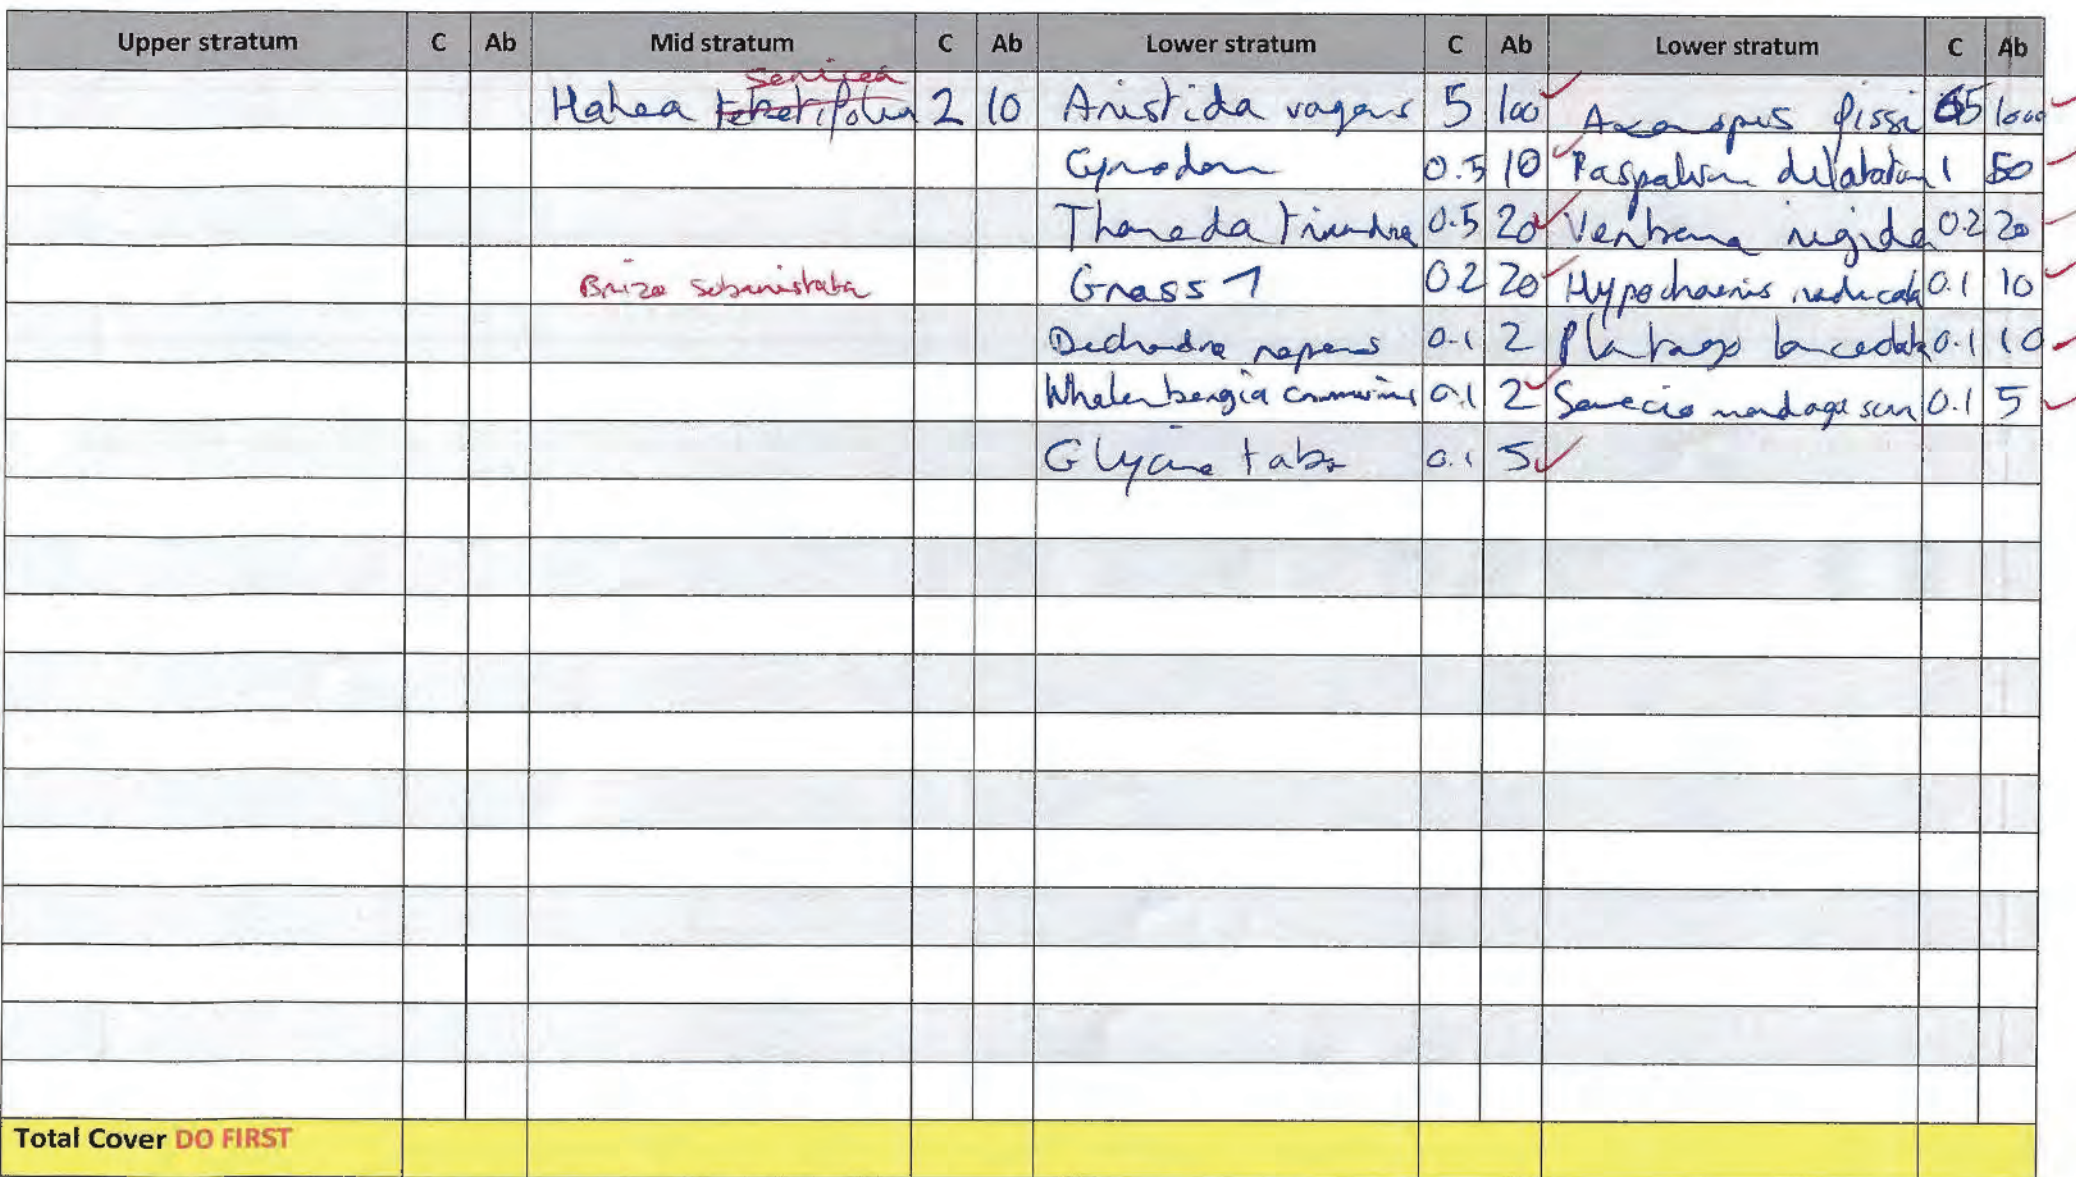 Upper stratum C Ab Mid stratum C Ab Lower stratum C Ab Lower stratum C Ab
sericea
Hakea 2 10 Aristida vagans 5 100 Axonopus fissi 65 1000
Cynodon 0.5 10 Paspalum dilatatum 1 50
Themeda triandra 0.5 20 Verbena rigida 0.2 20
Briza subaristata Grass 1 0.2 20 Hypochaeris radicata 0.1 10
Dichondra repens 0.1 2 Plantago lanceolata 0.1 10
Whalenbergia communis 0.1 2 Senecio madagascar 0.1 5
Glycine taba 0.1 5
Total Cover DO FIRST